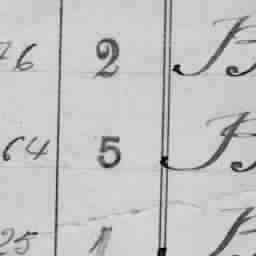 76 2 B
64 5 B
25 1 B